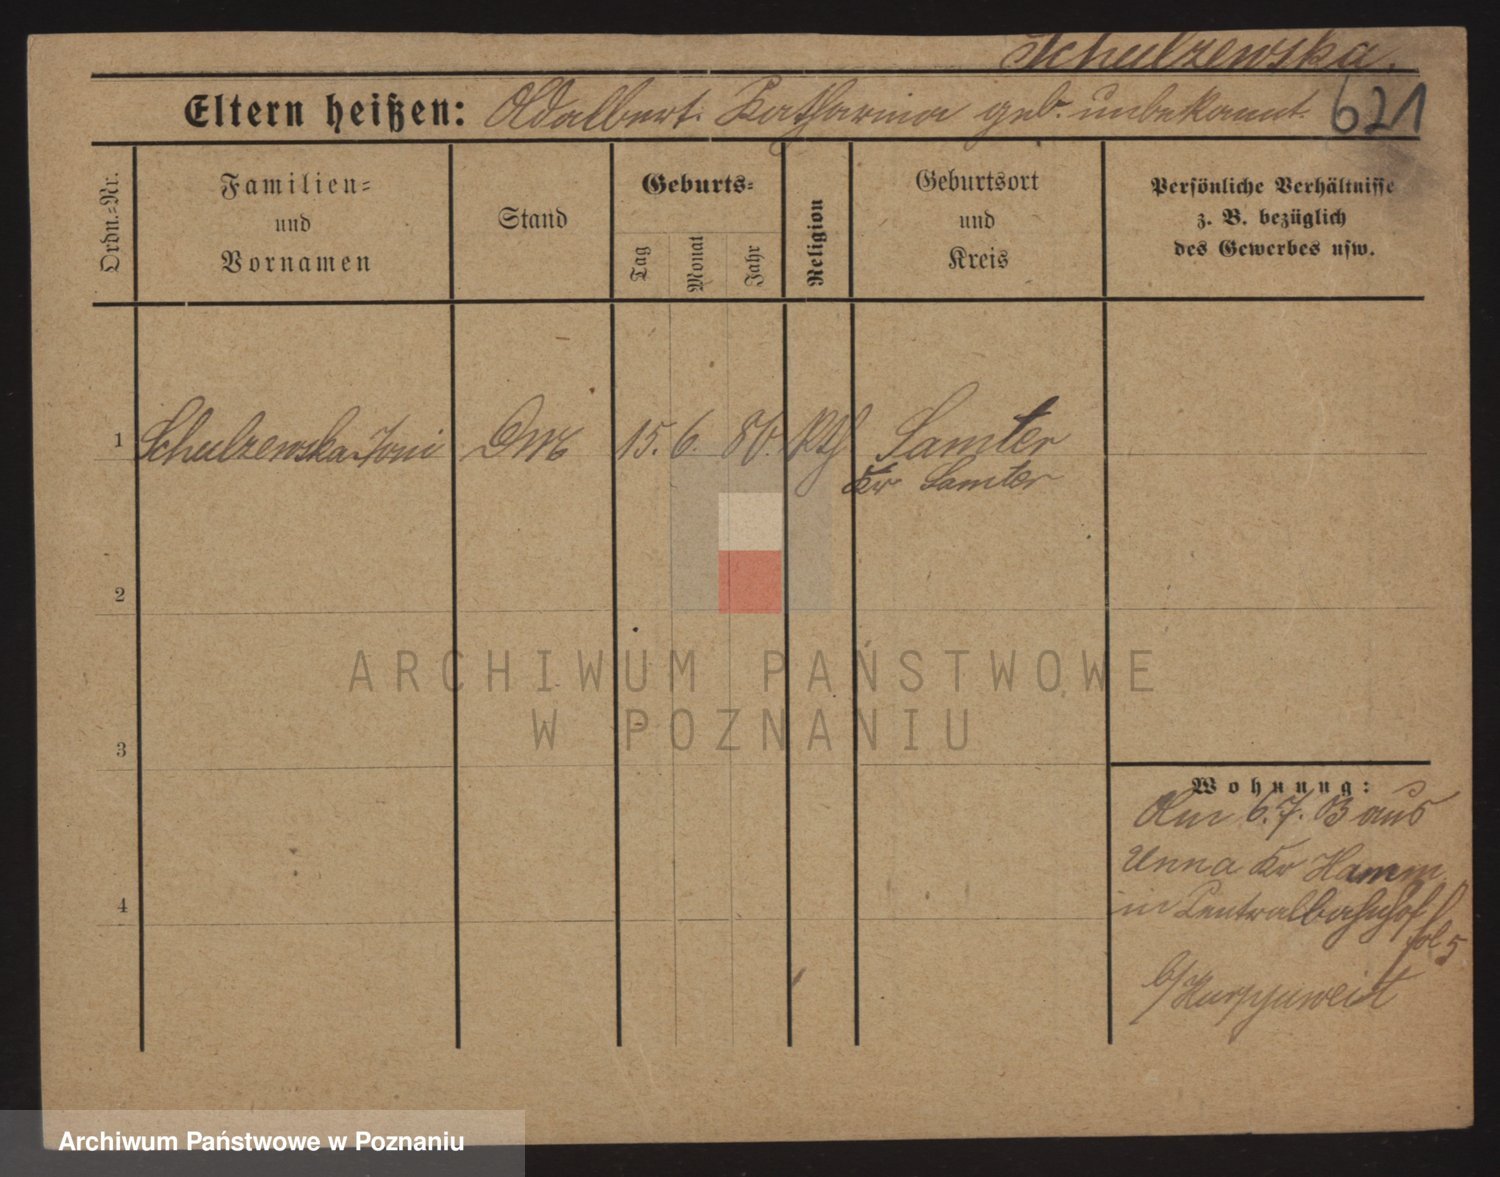 Schulzewska.
Eltern heißen: Adalbert. Katharina geb. unbekannt.
621
Ordn.=Nr.
Familien=
und
Vornamen
Stand
Geburts=
Tag
Monat
Jahr
Religion
Geburtsort
und
Kreis
Persönliche Verhältnisse
z. B. bezüglich
des Gewerbes usw.
1 Schulzewska Toni 15. 6. 80. kth Samter
Kr Samter
2
3
4
ARCHIWUM PAŃSTWOWE
W POZNANIU
Wohnung:
Am 6.7.03 aus
Unna Kr Hamm
in Centralbahnhof
fol 5
b/
Archiwum Państwowe w Poznaniu